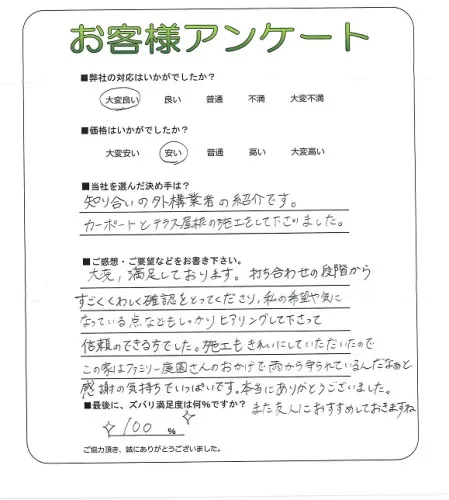 お客様アンケート
■弊社の対応はいかがでしたか？
大変良い 良い 普通 不満 大変不満
■価格はいかがでしたか？
大変安い 安い 普通 高い 大変高い
■当社を選んだ決め手は？
知り合いの外構業者の紹介です。
カーポートとテラス屋根の施工をして下さいました。
■ご感想・ご要望などをお書き下さい。
大変、満足しております。打ち合わせの段階から
すごくくわしく確認をとってくださり、私の希望や気に
なっている点などもしっかりヒアリングして下さって
信頼のできる方でした。施工もきれいにしていただいたので
この家はファミリー庭園さんのおかげで雨から守られているんだなぁと
感謝の気持ちでいっぱいです。本当にありがとうございました。
また友人におすすめしておきますね
■最後に、ズバリ満足度は何%ですか？
100 %
ご協力頂き、誠にありがとうございました。